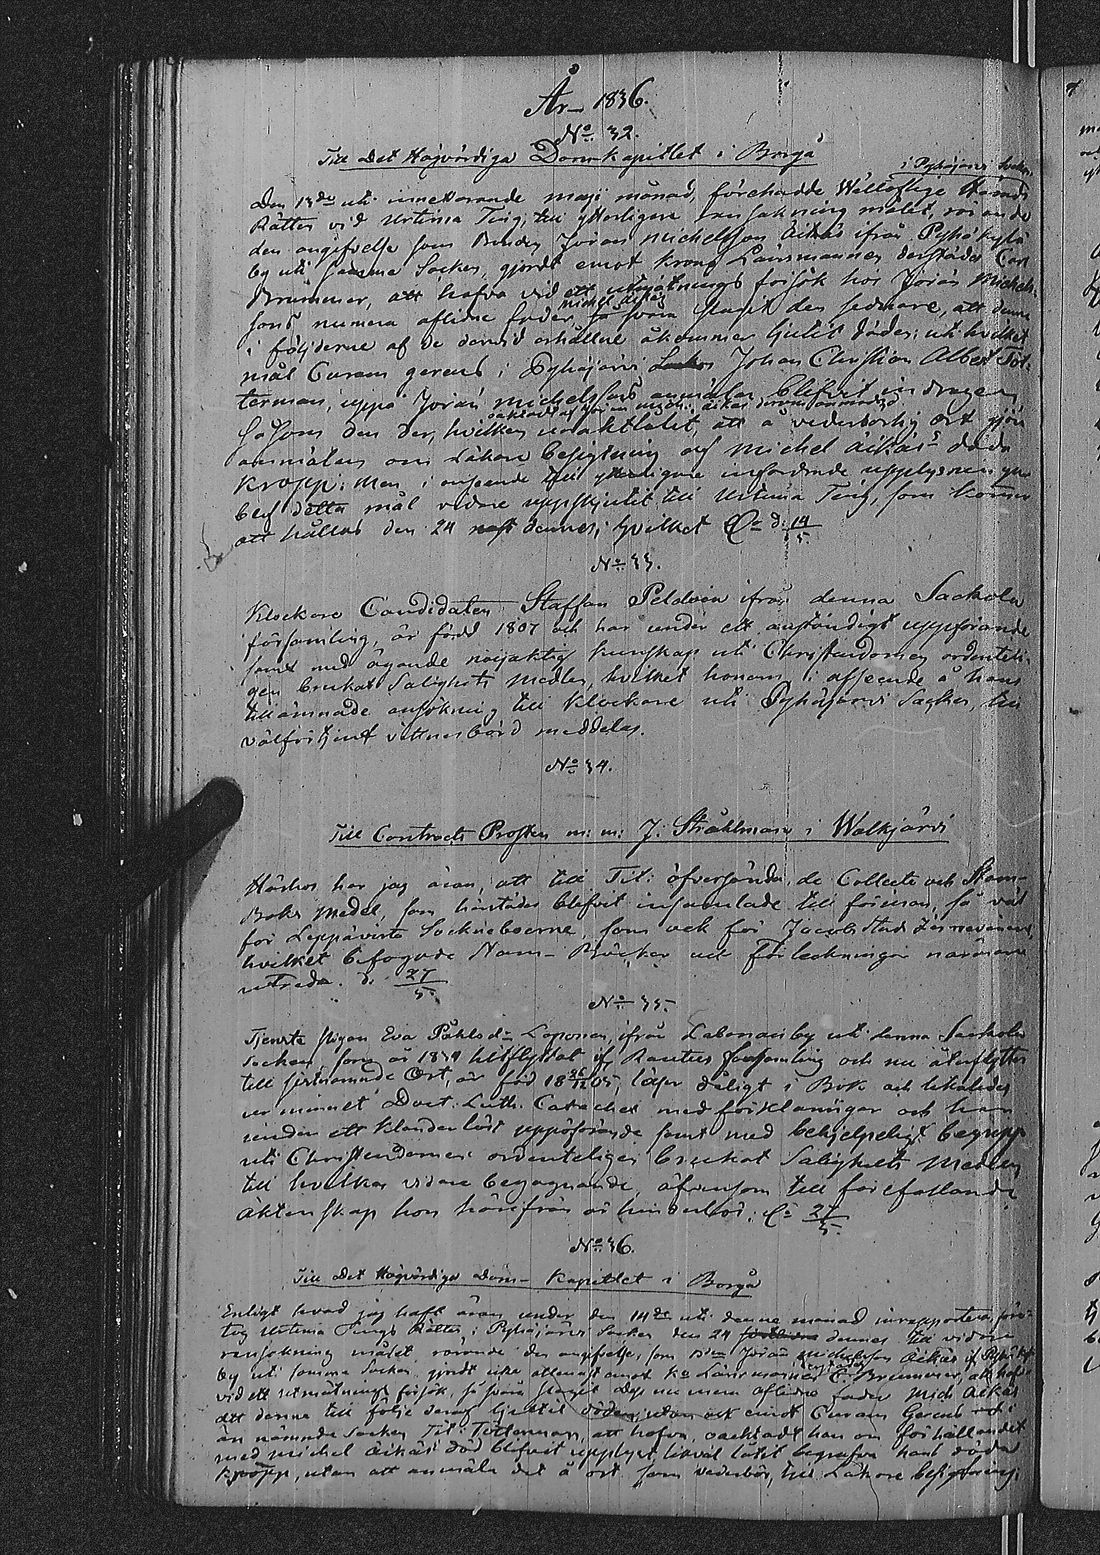 År 1836.
No 32.
Till Det Högvördiga Domkapitlet i Borgå
i Pyhäjärvi Socken
Den 13de uti innevarande maji månad, förehadde Wällofliga Härads
Rätten vid Urtima Ting, till ytterligare ransakning målet, rörande
den angifvelse som Bonden Jöran Michelsson Äikäs ifrån Pyhäkylä
by uti samma Socken, gjordt emot Krono Länsmannen derstädes Carl
Brummer, att hafva vid ett utmätnings försök hos Jöran Michels-
sons numera aflidne fader Michel Äikäs så svåra slagit den sednare, att denne
i följderne af de dervid erhållne åkommer ljutit döden; uti hvilket
mål Curam gerens i Pyhäjärvi Johan Christian Albert Tot-
terman, uppå Jöran Michelssons anmälan blifvit indragen
såsom den der, hvilken uraktlåtit, att å vederbörlig ort göra
anmälan om Läkare besigtning af Michel Äikäs's döda
kropp. Men i anseende till ytterligare infordrade upplysningar
blef detta mål vidare uppskjutit till Urtima Ting, som kommer
att hållas den 24 dennes; hvilket d. 14/5.
No 33.
Klockare Candidaten Staffan Peldoin ifrån denna Sackola
församling, är född 1807 och har under ett anständigt uppförande
samt med ägande nöjaktig kunskap uti Christendomen ordentli-
gen brukat Salighets medlen, hvilket honom i afseende å hans
tillämnade ansökning till Klockare uti Pyhäjärvi Socken, till
välförtjent vittnesbörd meddelas.
No 34.
Till Contracts Prosten m: m: J. Stråhlman i Walkjärvi
Härhos har jag äran, att till Tit: öfversända, de Collect och Stam-
Boks Medel, som härstädes blifvit insamlade till förmån, så väl
för Leppävirta Sockneboerne, som ock för Jacobstads
hvilket bifogade Stam-Böcker och förteckningar närmare
utreda. d. 27/5.
No 35.
Tjenste pigan Eva Påhls dr Loponen, ifrån by uti denna Sackola
Socken, som år 1834 hitflyttat if. Rautus församling och nu återflyttar
till sistnämnde Ort, är född 18 05, läser dåligt i Bok och likaledes
ur minnet Doct: Luth. Cateches med förklaringar och har
under ett klanderlöst uppförande samt med behjelpeligt begrepp
uti Christendomen ordenteligen brukat Salighets Medlen
till hvilkas vidare begagnande, äfvensom till förefallande
äktenskap hon härifrån är hinderlös. 27/5.
No 36.
Till Det Högvördiga Dom-Kapitlet i Borgå
Enligt hvad jag haft äran under den 14de uti denne månad inrapportera, före-
tog Urtima Tings Rätten i Pyhäjärvi Socken den 24 dennes till vidare
ransakning målet rörande den angifvelse, som Bonden Jöran Michelsson Äikäs if. Pyhäkylä
by uti samma Socken gjordt icke allenast emot Ko Länsmannen C. Brummer, att hafva
vid ett utmätnings försök, så svåra slagit dess nu mera aflidne fader Mich. Äikäs
att denne till följe deraf ljutit döden, utan ock emot Curam Gerens
än nämnde Socken Tit: Totterman, att hafva, oacktadt han om förhållandet
med Michel Äikäs död blifvit upplyst, likväl låtit begrafva hans döda
kropp, utan att anmäla det å ort som vederbör, till Läkare besigtning.